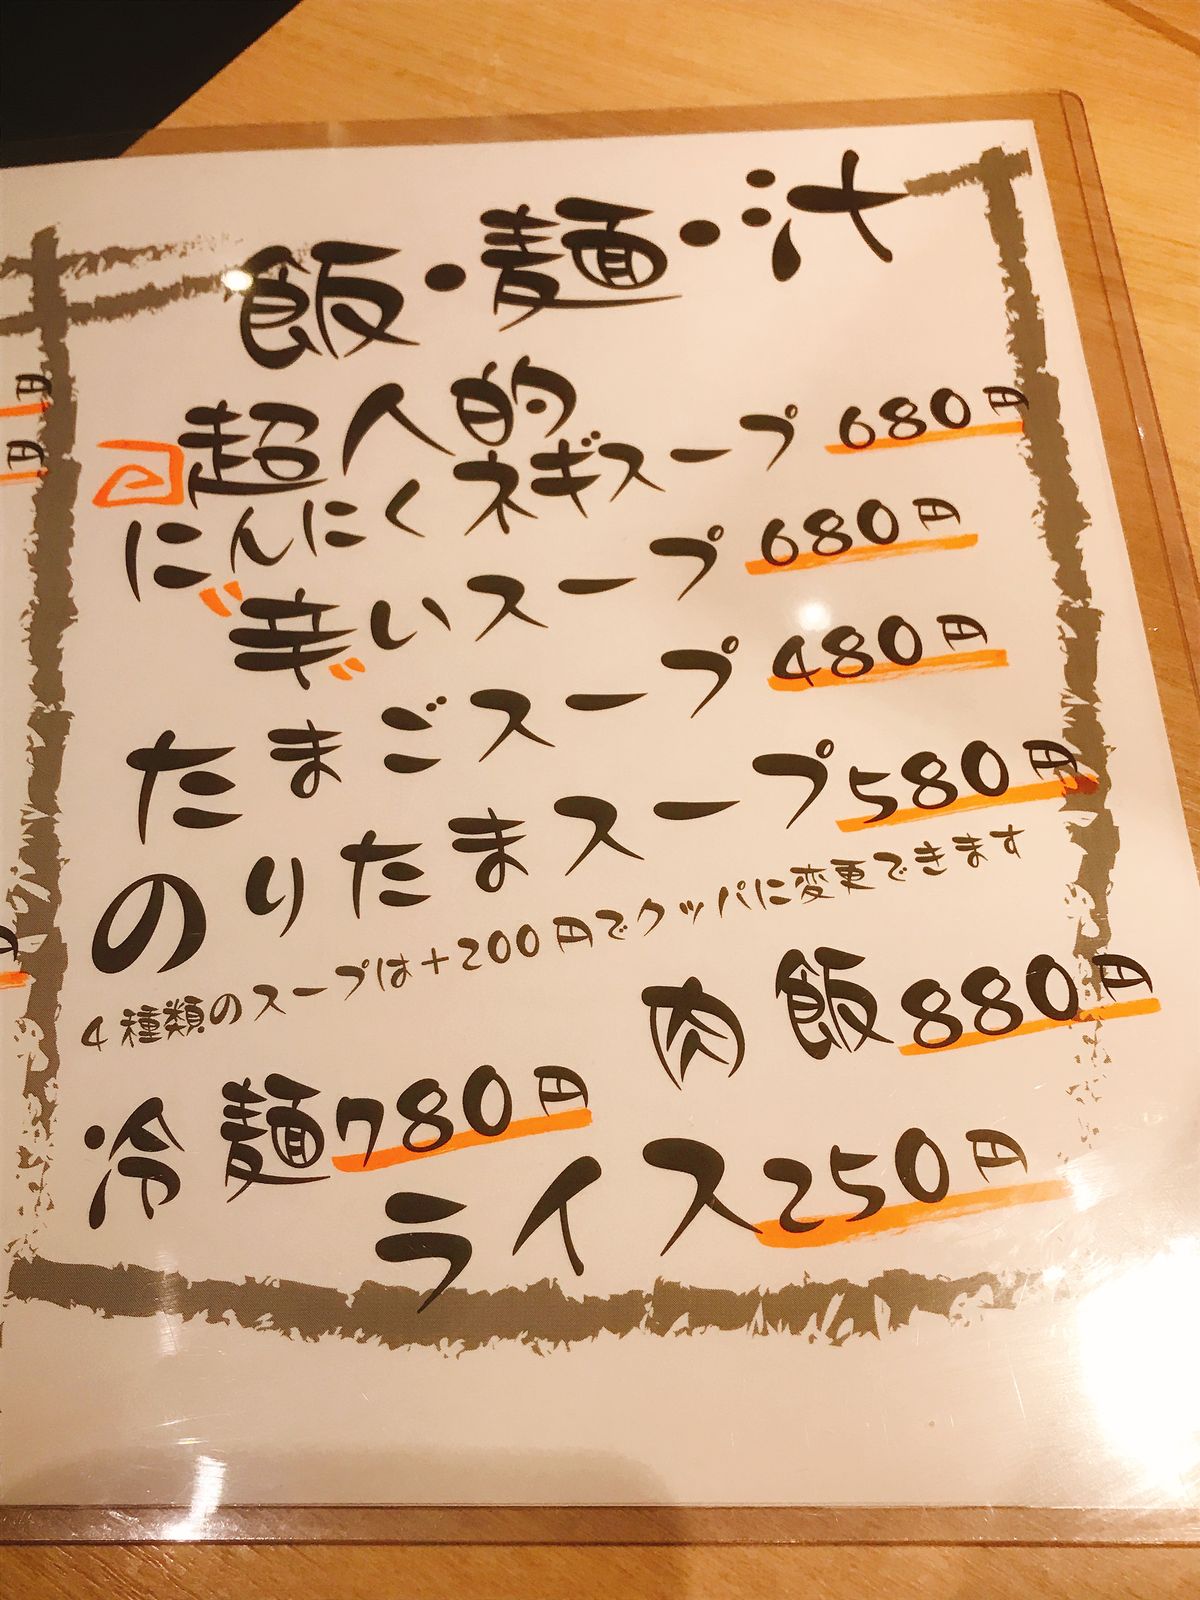 飯・麺・汁
超人的
にんにくネギスープ 680円
辛いスープ 680円
たまごスープ 480円
のりたまスープ 580円
4種類のスープは+200円でクッパに変更できます
肉飯 880円
冷麺 780円
ライス 250円
円
円
円